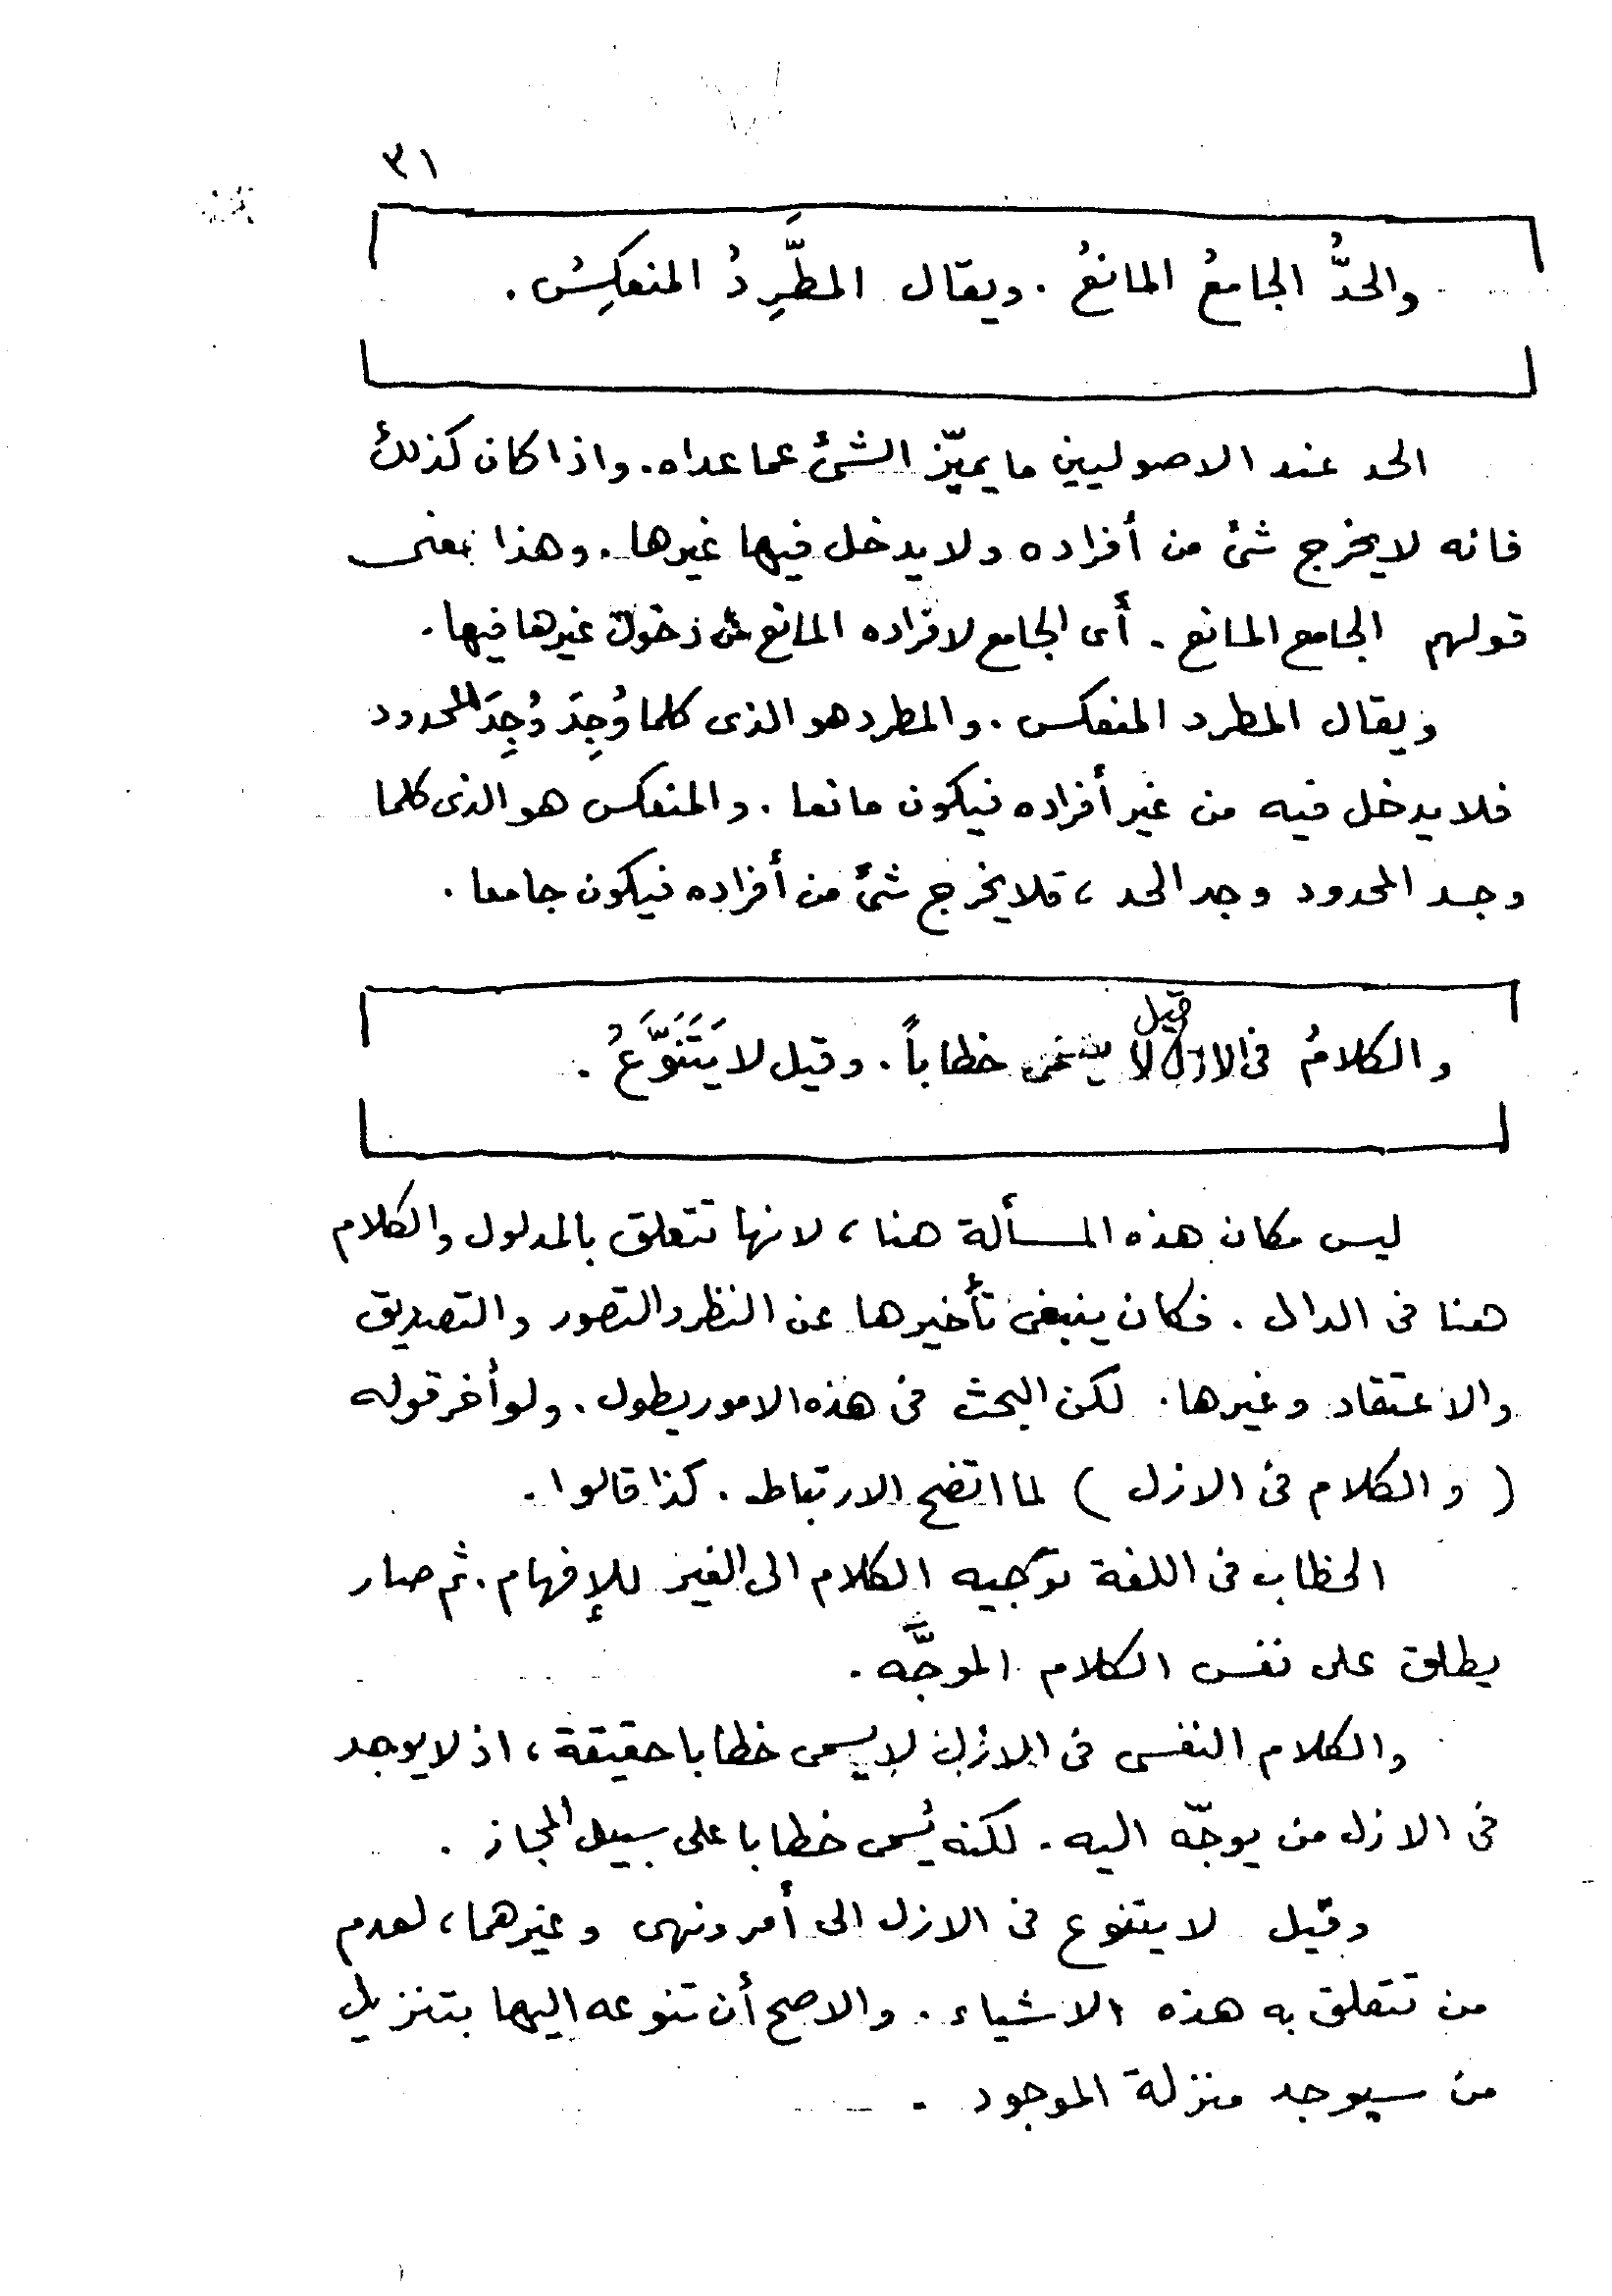 ٣١
والحدُّ الجامعُ المانعُ . ويقال المطَّرِدُ المنعكِسُ .
الحد عند الاصوليين ما يميّز الشئ عما عداه . واذا كان كذلك
فانه لا يخرج شئ من أفراده ولا يدخل فيها غيرها . وهذا بمعنى
قولهم الجامع المانع . أى الجامع لافراده المانع من دخول غيرها فيها .
ويقال المطرد المنعكس . والمطرد هو الذى كلما وُجِدَ وُجِدَ المحدود
فلا يدخل فيه من غير أفراده فيكون مانعا . والمنعكس هو الذى كلما
وجد المحدود وجد الحد ، فلا يخرج شئ من أفراده فيكون جامعا .
والكلامُ فى الازل قيل لا يسمى خطاباً . وقيل لا يَتَنَوَّعُ .
ليس مكان هذه المسألة هنا ، لانها تتعلق بالمدلول والكلام
هنا فى الدال . فكان ينبغى تأخيرها عن النظر والتصور والتصديق
والاعتقاد وغيرها . لكن البحث فى هذه الامور يطول . ولو أخر قوله
( والكلام فى الازل ) لما اتضح الارتباط . كذا قالوا .
الخطاب فى اللغة توجيه الكلام الى الغير للإفهام . ثم صار
يطلق على نفس الكلام الموجَّه .
والكلام النفسى فى الازل لا يسمى خطابا حقيقة ، اذ لا يوجد
فى الازل من يوجّه اليه . لكنه يُسمى خطابا على سبيل المجاز .
وقيل لا يتنوع فى الازل الى أمر ونهى وغيرهما ، لعدم
من تتعلق به هذه الاشياء . والاصح أن تنوعه إليها بتنزيل
من سيوجد منزلة الموجود .